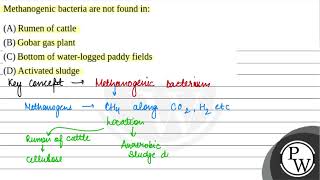 Methanogenic bacteria are not found in:
(A) Rumen of cattle
(B) Gobar gas plant
(C) Bottom of water-logged paddy fields
(D) Activated sludge
Key concept → Methanogenic bacterium
Methanogens → CH4 along CO2, H2 etc
Location
Rumen of cattle
Anaerobic
cellulose
sludge d
P
W